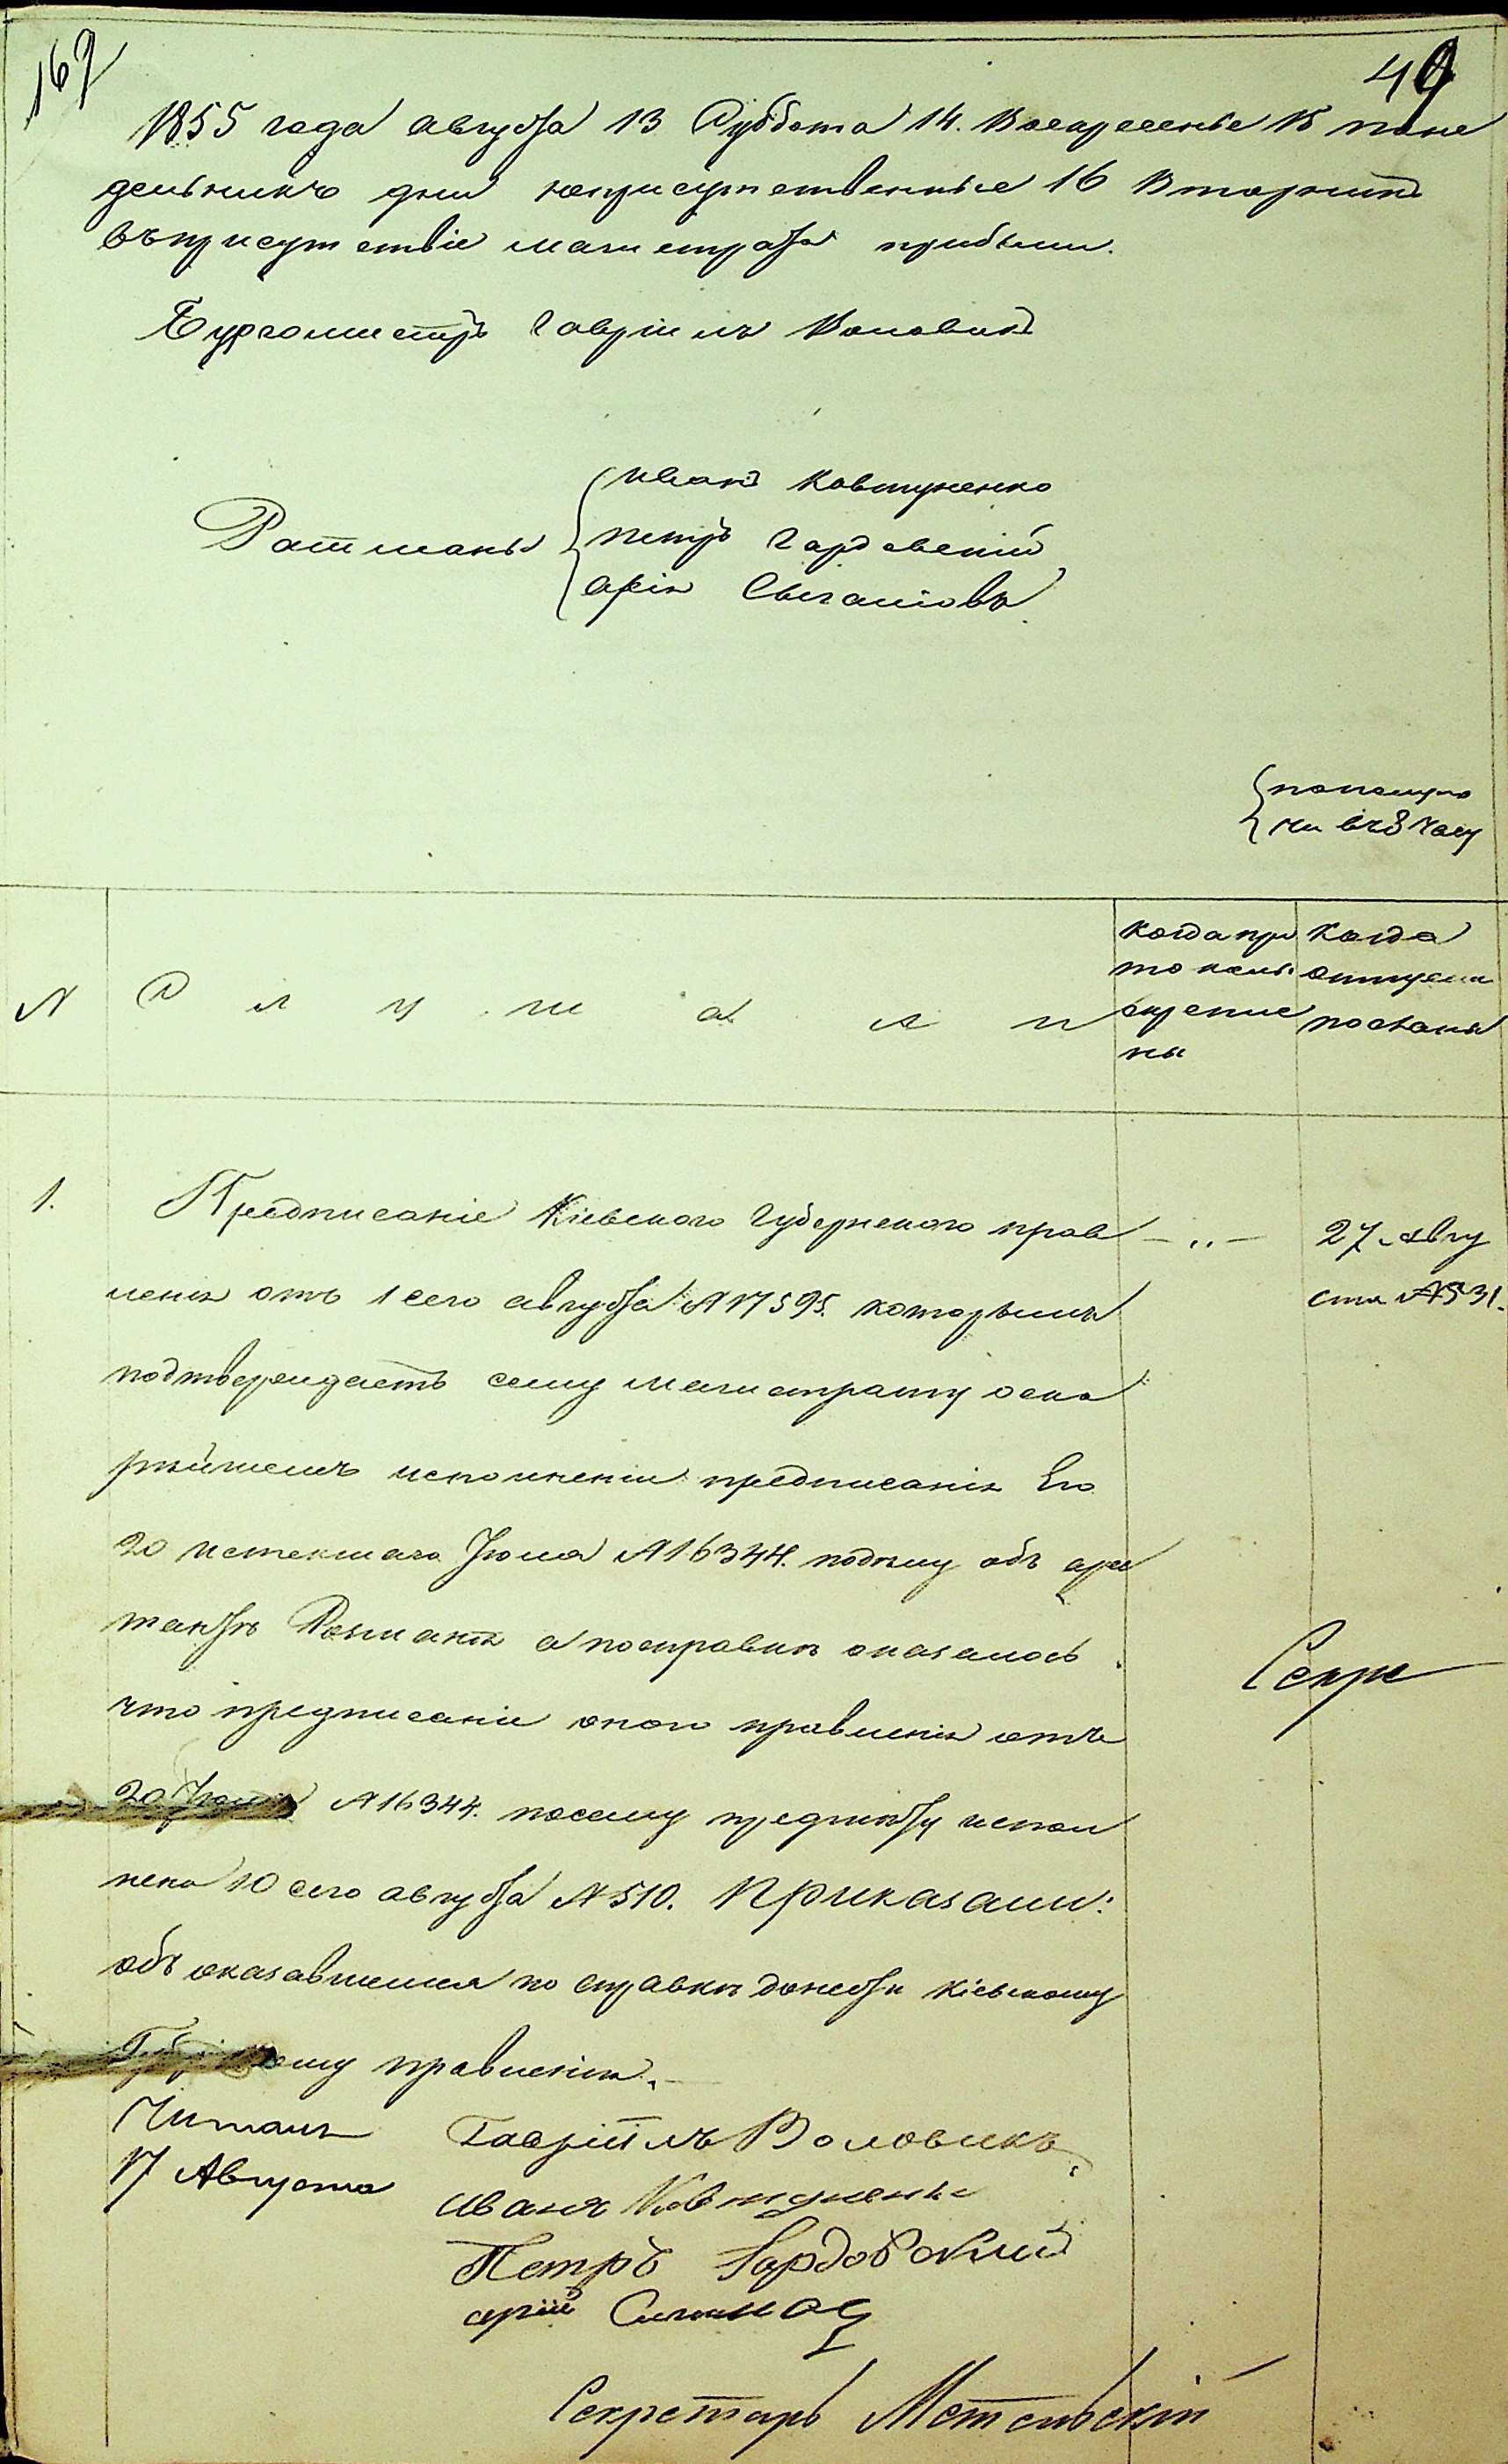 167
49
1855 года августа 13 Суббота 14. Воскресенье 15 поне
дельникъ дни неприсутственные 16 Вторникъ
въприсутствіе магистрата прибыли.
Бургомистръ Гавріилъ Воловикъ
Ратманы
иванъ Ковтуненко
петръ Гардовский
арія Сыгаловъ
пополуно
чи въ 3 часу
N
Слушали
когда про
токолъ
скрепле
ны
когда
отпуски
посланы
1.
Предписаніе Кіевского Губернского прав
ленія отъ 1 сего августа N 17595. которымъ
подтверждаетъ сему магистрату оско
рѣйшемъ исполненіи предписанія Его
20 истекшаго Іюля N 16344. подѣлу объ арес
тантѣ а посправкѣ оказалось
что предписаніе оного правленія отъ
20 Іюля N 16344. посему предмѣту испол
нено 10 сего августа N 510. Приказали:
объ оказавшемся по справкѣ донесть Кіевскому
Губернскому правленію.
— „ —
27 Авгу
ста N 531.
Секре
Читалъ
17 Августа
Гавріилъ Воловикъ
иванъ Ковтуненко
Петръ Гардовский
Секретарь